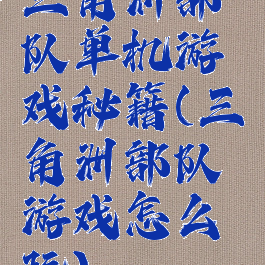 三角洲部
队单机游
戏秘籍(三
角洲部队
游戏怎么
玩)